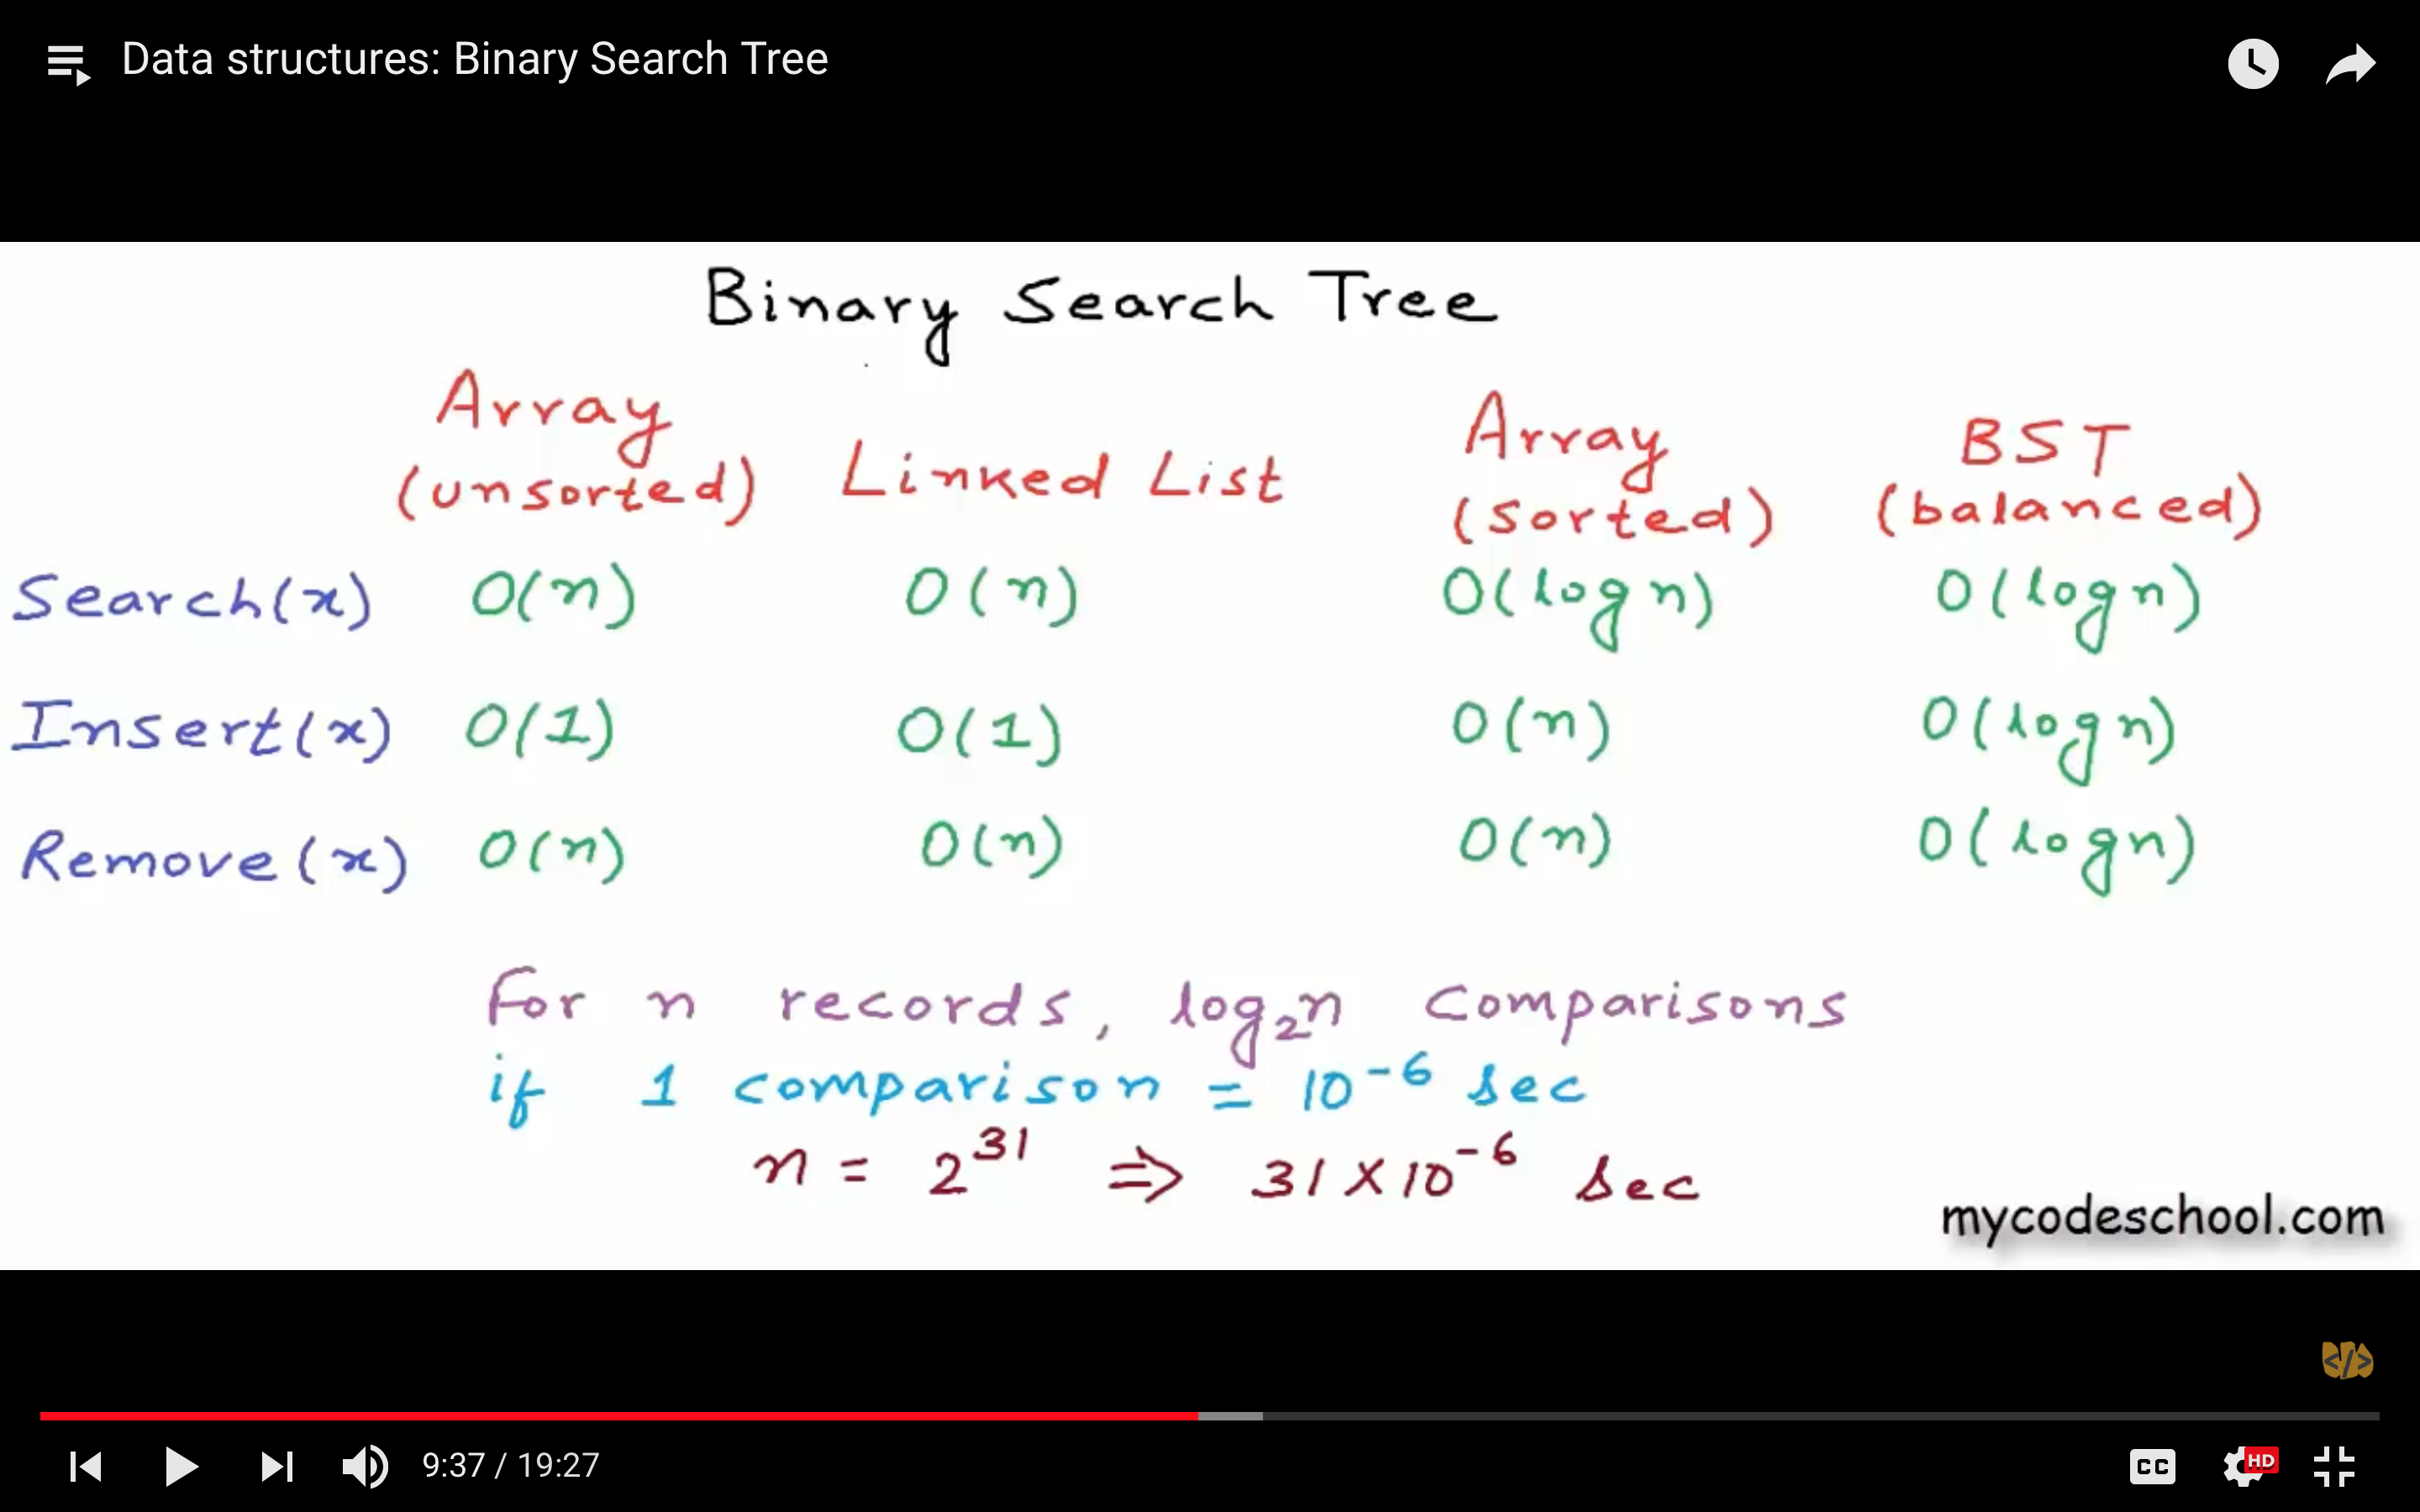 Data structures: Binary Search Tree
Binary Search Tree
Array (unsorted) Linked List Array (sorted) BST (balanced)
Search(x) O(n) O(n) O(log n) O(log n)
Insert(x) O(1) O(1) O(n) O(log n)
Remove(x) O(n) O(n) O(n) O(log n)
For n records, log₂n comparisons
if 1 comparison = 10⁻⁶ sec
n = 2³¹ ⇒ 31 × 10⁻⁶ sec
mycodeschool.com
</>
9:37 / 19:27 CC HD